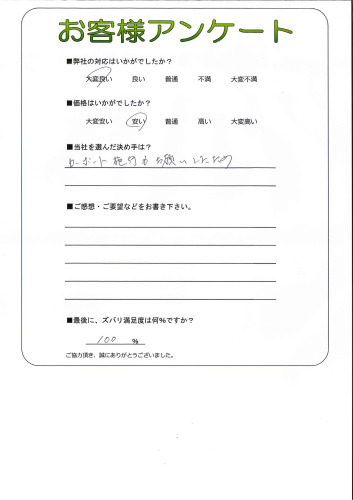 お客様アンケート
■弊社の対応はいかがでしたか？
大変良い 良い 普通 不満 大変不満
■価格はいかがでしたか？
大変安い 安い 普通 高い 大変高い
■当社を選んだ決め手は？
カーポート施行もお願いしたため
■ご感想・ご要望などをお書き下さい。
■最後に、ズバリ満足度は何%ですか？
100 %
ご協力頂き、誠にありがとうございました。